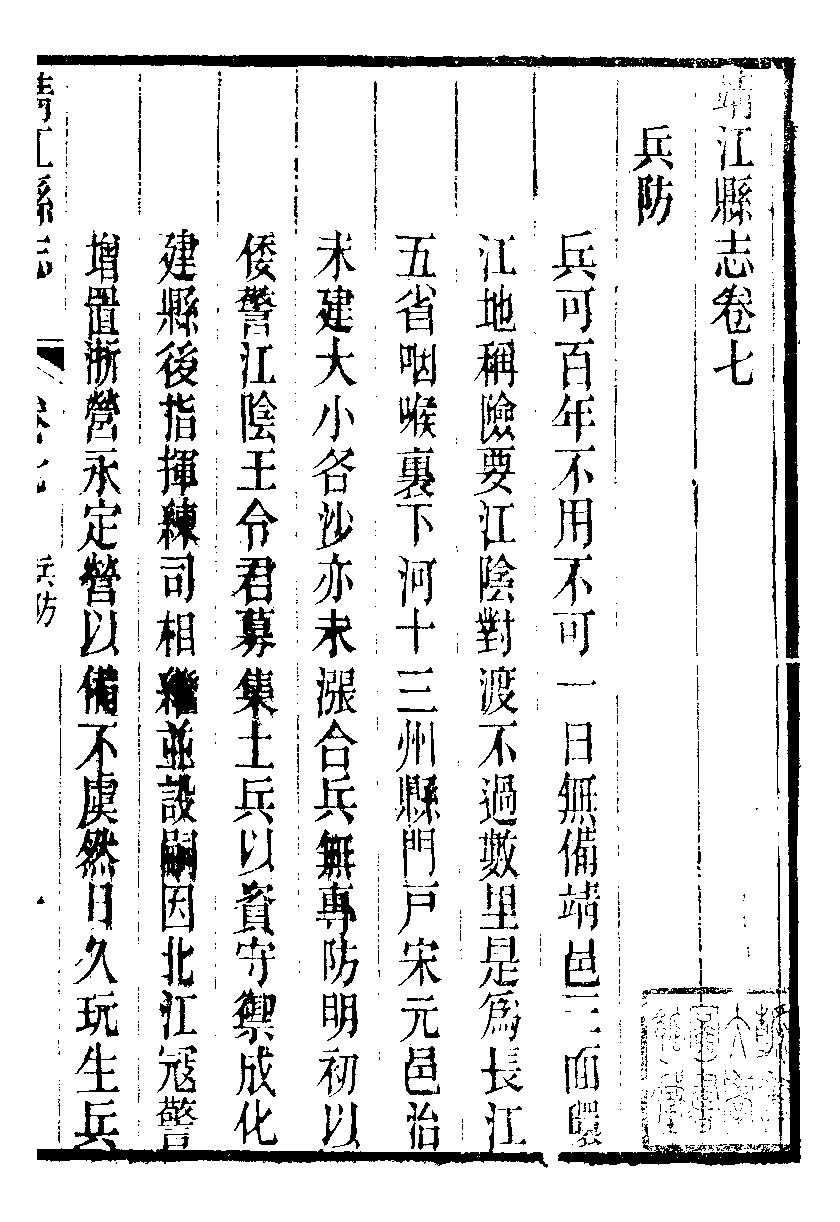 靖江縣志卷七
兵防
兵可百年不用不可一日無備靖邑三面環
江地稱險要江陰對渡不過數里是爲長江
五省咽喉裏下河十三州縣門戸宋元邑治
未建大小各沙亦未漲合兵無專防明初以
倭警江陰王令君募集土兵以資守禦成化
建縣後指揮練司相繼並設嗣因北江寇警
增置浙營永定營以備不虞然日久玩生兵
靖江縣志 卷七 兵防